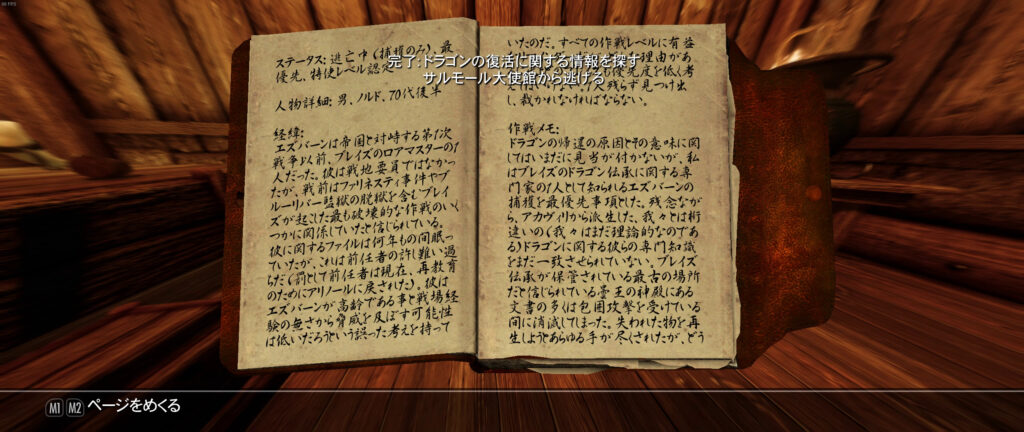 ステータス: 逃亡中 (捕獲のみ)、最
優先、特使レベル認定
人物詳細: 男、ノルド、70代後半
経緯:
エズバーンは帝国と対峙する第1次
戦争以前、ブレイズのロアマスターの1
人だった。彼は戦地要員ではなかっ
たが、戦前はファリネスティ事件やブ
ルーリバー監獄の脱獄を含むブレイ
ズが起こした最も破壊的な作戦のいく
つかに関係していたと信じられている。
彼に関するファイルは何年もの間眠っ
ていたが、これは前任者の許し難い過
ちだ(罰として前任者は現在、再教育
のためにアリノールに戻された)。彼は
エズバーンが高齢である事と戦場経
験の無さから脅威を及ぼす可能性
は低いだろうという誤った考えを持って
いたのだ。すべての作戦レベルに有益
理由があ
優先度を低く考
残らず見つけ出
し、裁かれなければならない。
作戦メモ:
ドラゴンの帰還の原因とその意味に関
してはいまだに見当が付かないが、私
はブレイズのドラゴン伝承に関する専
門家の1人として知られるエズバーンの
捕獲を最優先事項とした。残念なが
ら、アカヴィリから派生した、我々とは桁
違いの(我々はまだ理論的なのであ
る)ドラゴンに関する彼らの専門知識
をまだ一致させられていない。ブレイズ
伝承が保管されている最古の場所
だと信じられている曇王の神殿にある
文書の多くは包囲攻撃を受けている
間に消滅してしまった。失われた物を再
生しようとあらゆる手が尽くされたが、どう
完了: ドラゴンの復活に関する情報を探す
サルモール大使館から逃げる
M1 M2 ページをめくる